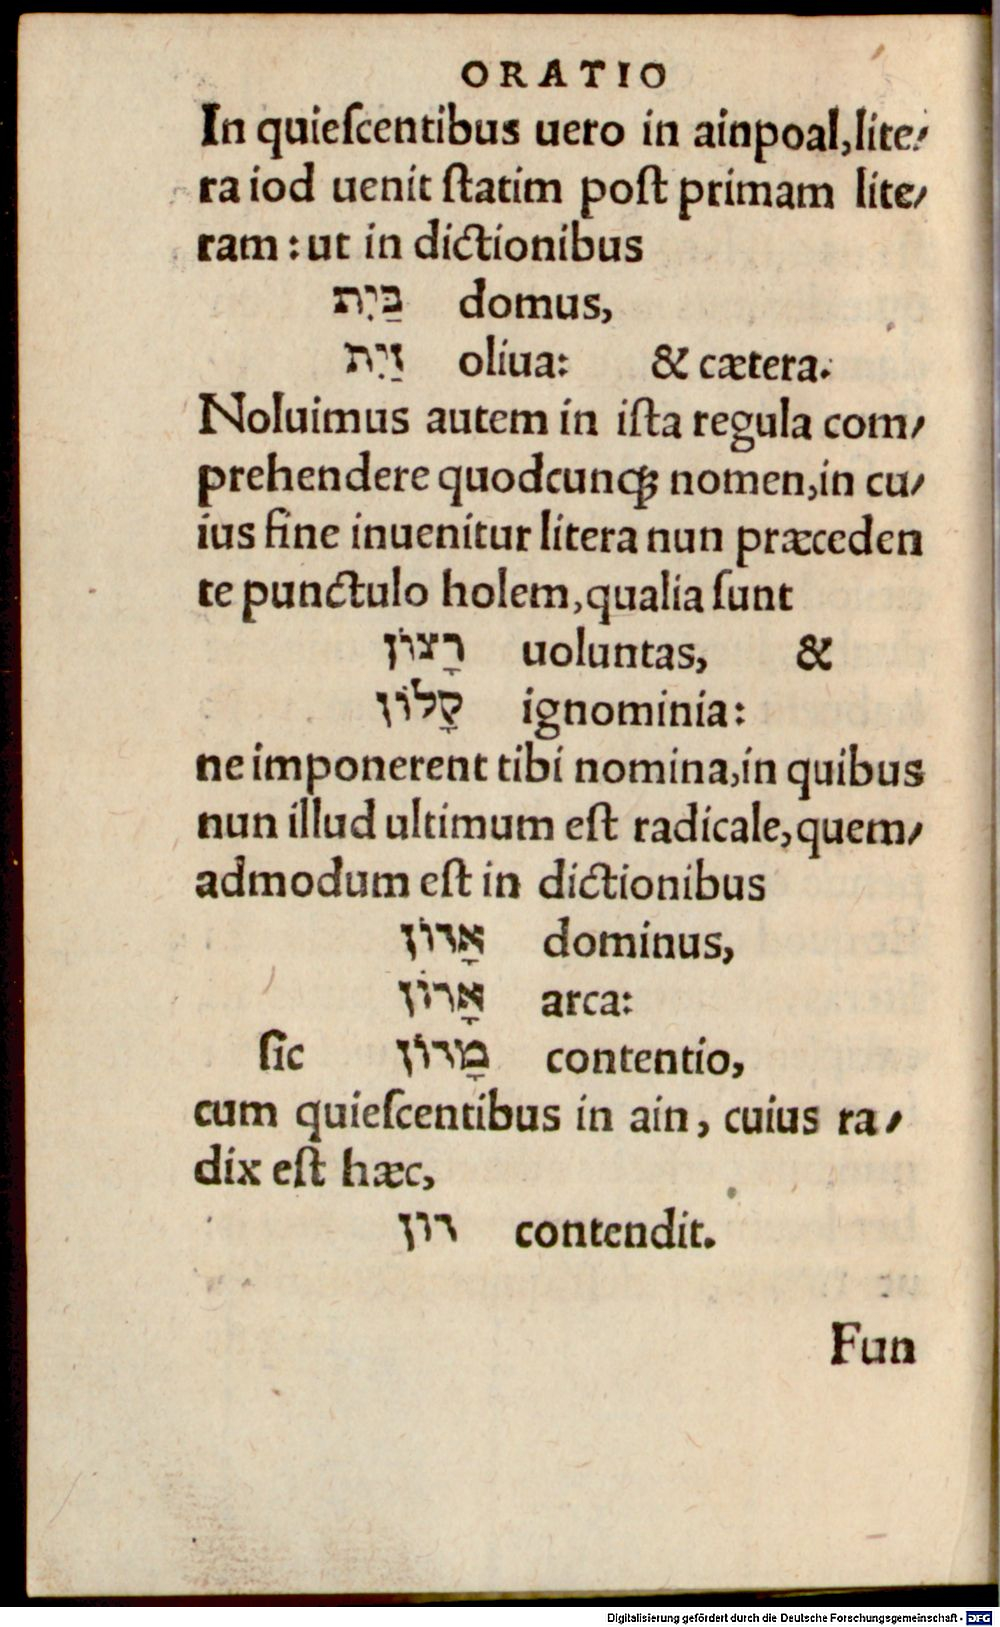 ORATIO
In quieſcentibus uero in ainpoal, lite⸗
ra iod uenit ſtatim poſt primam lite⸗
ram : ut in dictionibus
בַּיִת domus,
זַיִת oliua: & cætera.
Noluimus autem in iſta regula com⸗
prehendere quodcunqꝫ nomen, in cu⸗
ius fine inuenitur litera nun præceden
te punctulo holem, qualia ſunt
רָצוֹן uoluntas, &
קָלוֹן ignominia:
ne imponerent tibi nomina, in quibus
nun illud ultimum eſt radicale, quem⸗
admodum eſt in dictionibus
אָדוֹן dominus,
אָרוֹן arca:
ſic מָדוֹן contentio,
cum quieſcentibus in ain, cuius ra⸗
dix eſt hæc,
דון contendit.
Fun
Digitalisierung gefördert durch die Deutsche Forschungsgemeinschaft - DFG